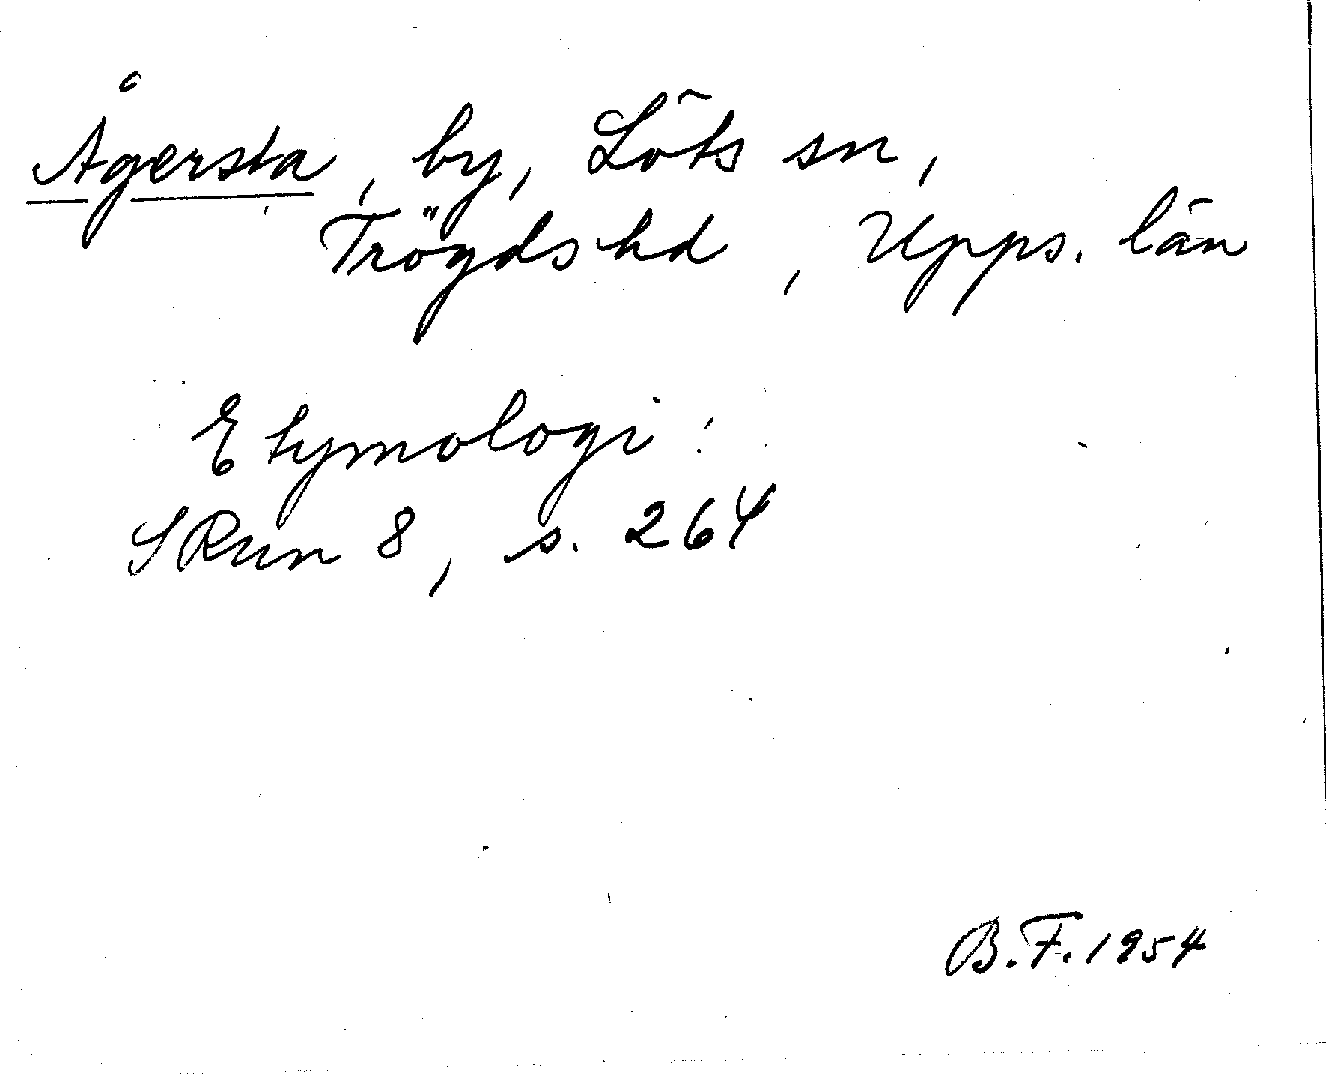 Ågersta, by, Löts sn,
Trögds hd, Upps. län
Etymologi:
SRun 8, s. 264
B.F. 1954